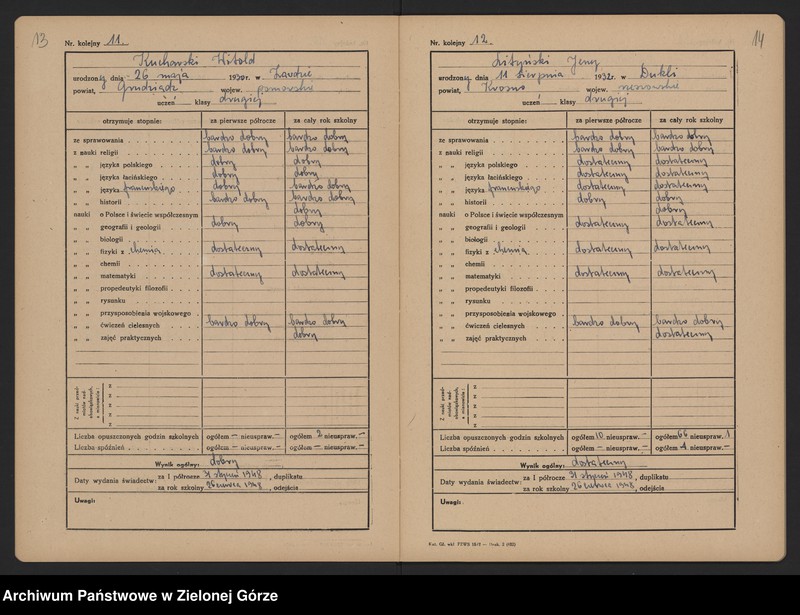 13
Nr. kolejny 11.
Kucharski Witold
urodzony dnia 26 maja 1930 r. w
powiat, Grudziądz wojew. pomorskie
uczeń klasy drugiej
otrzymuje stopnie: za pierwsze półrocze za cały rok szkolny
ze sprawowania bardzo dobry bardzo dobry
z nauki religii bardzo dobry bardzo dobry
" " języka polskiego dobry dobry
" " języka łacińskiego dobry dobry
" " języka francuskiego dobry bardzo dobry
" " historii bardzo dobry bardzo dobry
nauki o Polsce i świecie współczesnym dobry
" " geografii i geologii dobry dobry
" " biologii
" " fizyki z chemią dostateczny dostateczny
" " chemii
" " matematyki dostateczny dostateczny
" " propedeutyki filozofii
" " rysunku
" " przysposobienia wojskowego
" " ćwiczeń cielesnych bardzo dobry bardzo dobry
" " zajęć praktycznych dobry
Z nauki przedmiotów nadobowiązkowych, a mianowicie:
Liczba opuszczonych godzin szkolnych ogółem – nieuspraw. – ogółem 2 nieuspraw. –
Liczba spóźnień ogółem – nieuspraw. – ogółem – nieuspraw. –
Wynik ogólny: dobry
Daty wydania świadectw: za I półrocze 31 styczeń 1948, duplikatu
za rok szkolny 26 czerwiec 1948, odejścia
Uwagi:
14
Nr. kolejny 12.
Jerzy
urodzony dnia 11 sierpnia 1932 r. w Dukli
powiat, Krosno wojew. rzeszowskie
uczeń klasy drugiej
otrzymuje stopnie: za pierwsze półrocze za cały rok szkolny
ze sprawowania bardzo dobry bardzo dobry
z nauki religii bardzo dobry bardzo dobry
" " języka polskiego dostateczny dostateczny
" " języka łacińskiego dostateczny dostateczny
" " języka francuskiego dostateczny dostateczny
" " historii dobry dobry
nauki o Polsce i świecie współczesnym dobry
" " geografii i geologii dostateczny dostateczny
" " biologii
" " fizyki z chemią dostateczny dostateczny
" " chemii
" " matematyki dostateczny dostateczny
" " propedeutyki filozofii
" " rysunku
" " przysposobienia wojskowego
" " ćwiczeń cielesnych bardzo dobry bardzo dobry
" " zajęć praktycznych dostateczny
Z nauki przedmiotów nadobowiązkowych, a mianowicie:
Liczba opuszczonych godzin szkolnych ogółem 10 nieuspraw. – ogółem 66 nieuspraw. 1
Liczba spóźnień ogółem – nieuspraw. – ogółem 1 nieuspraw. –
Wynik ogólny: dostateczny
Daty wydania świadectw: za I półrocze 31 styczeń 1948, duplikatu
za rok szkolny 26 czerwiec 1948, odejścia
Uwagi:
Archiwum Państwowe w Zielonej Górze